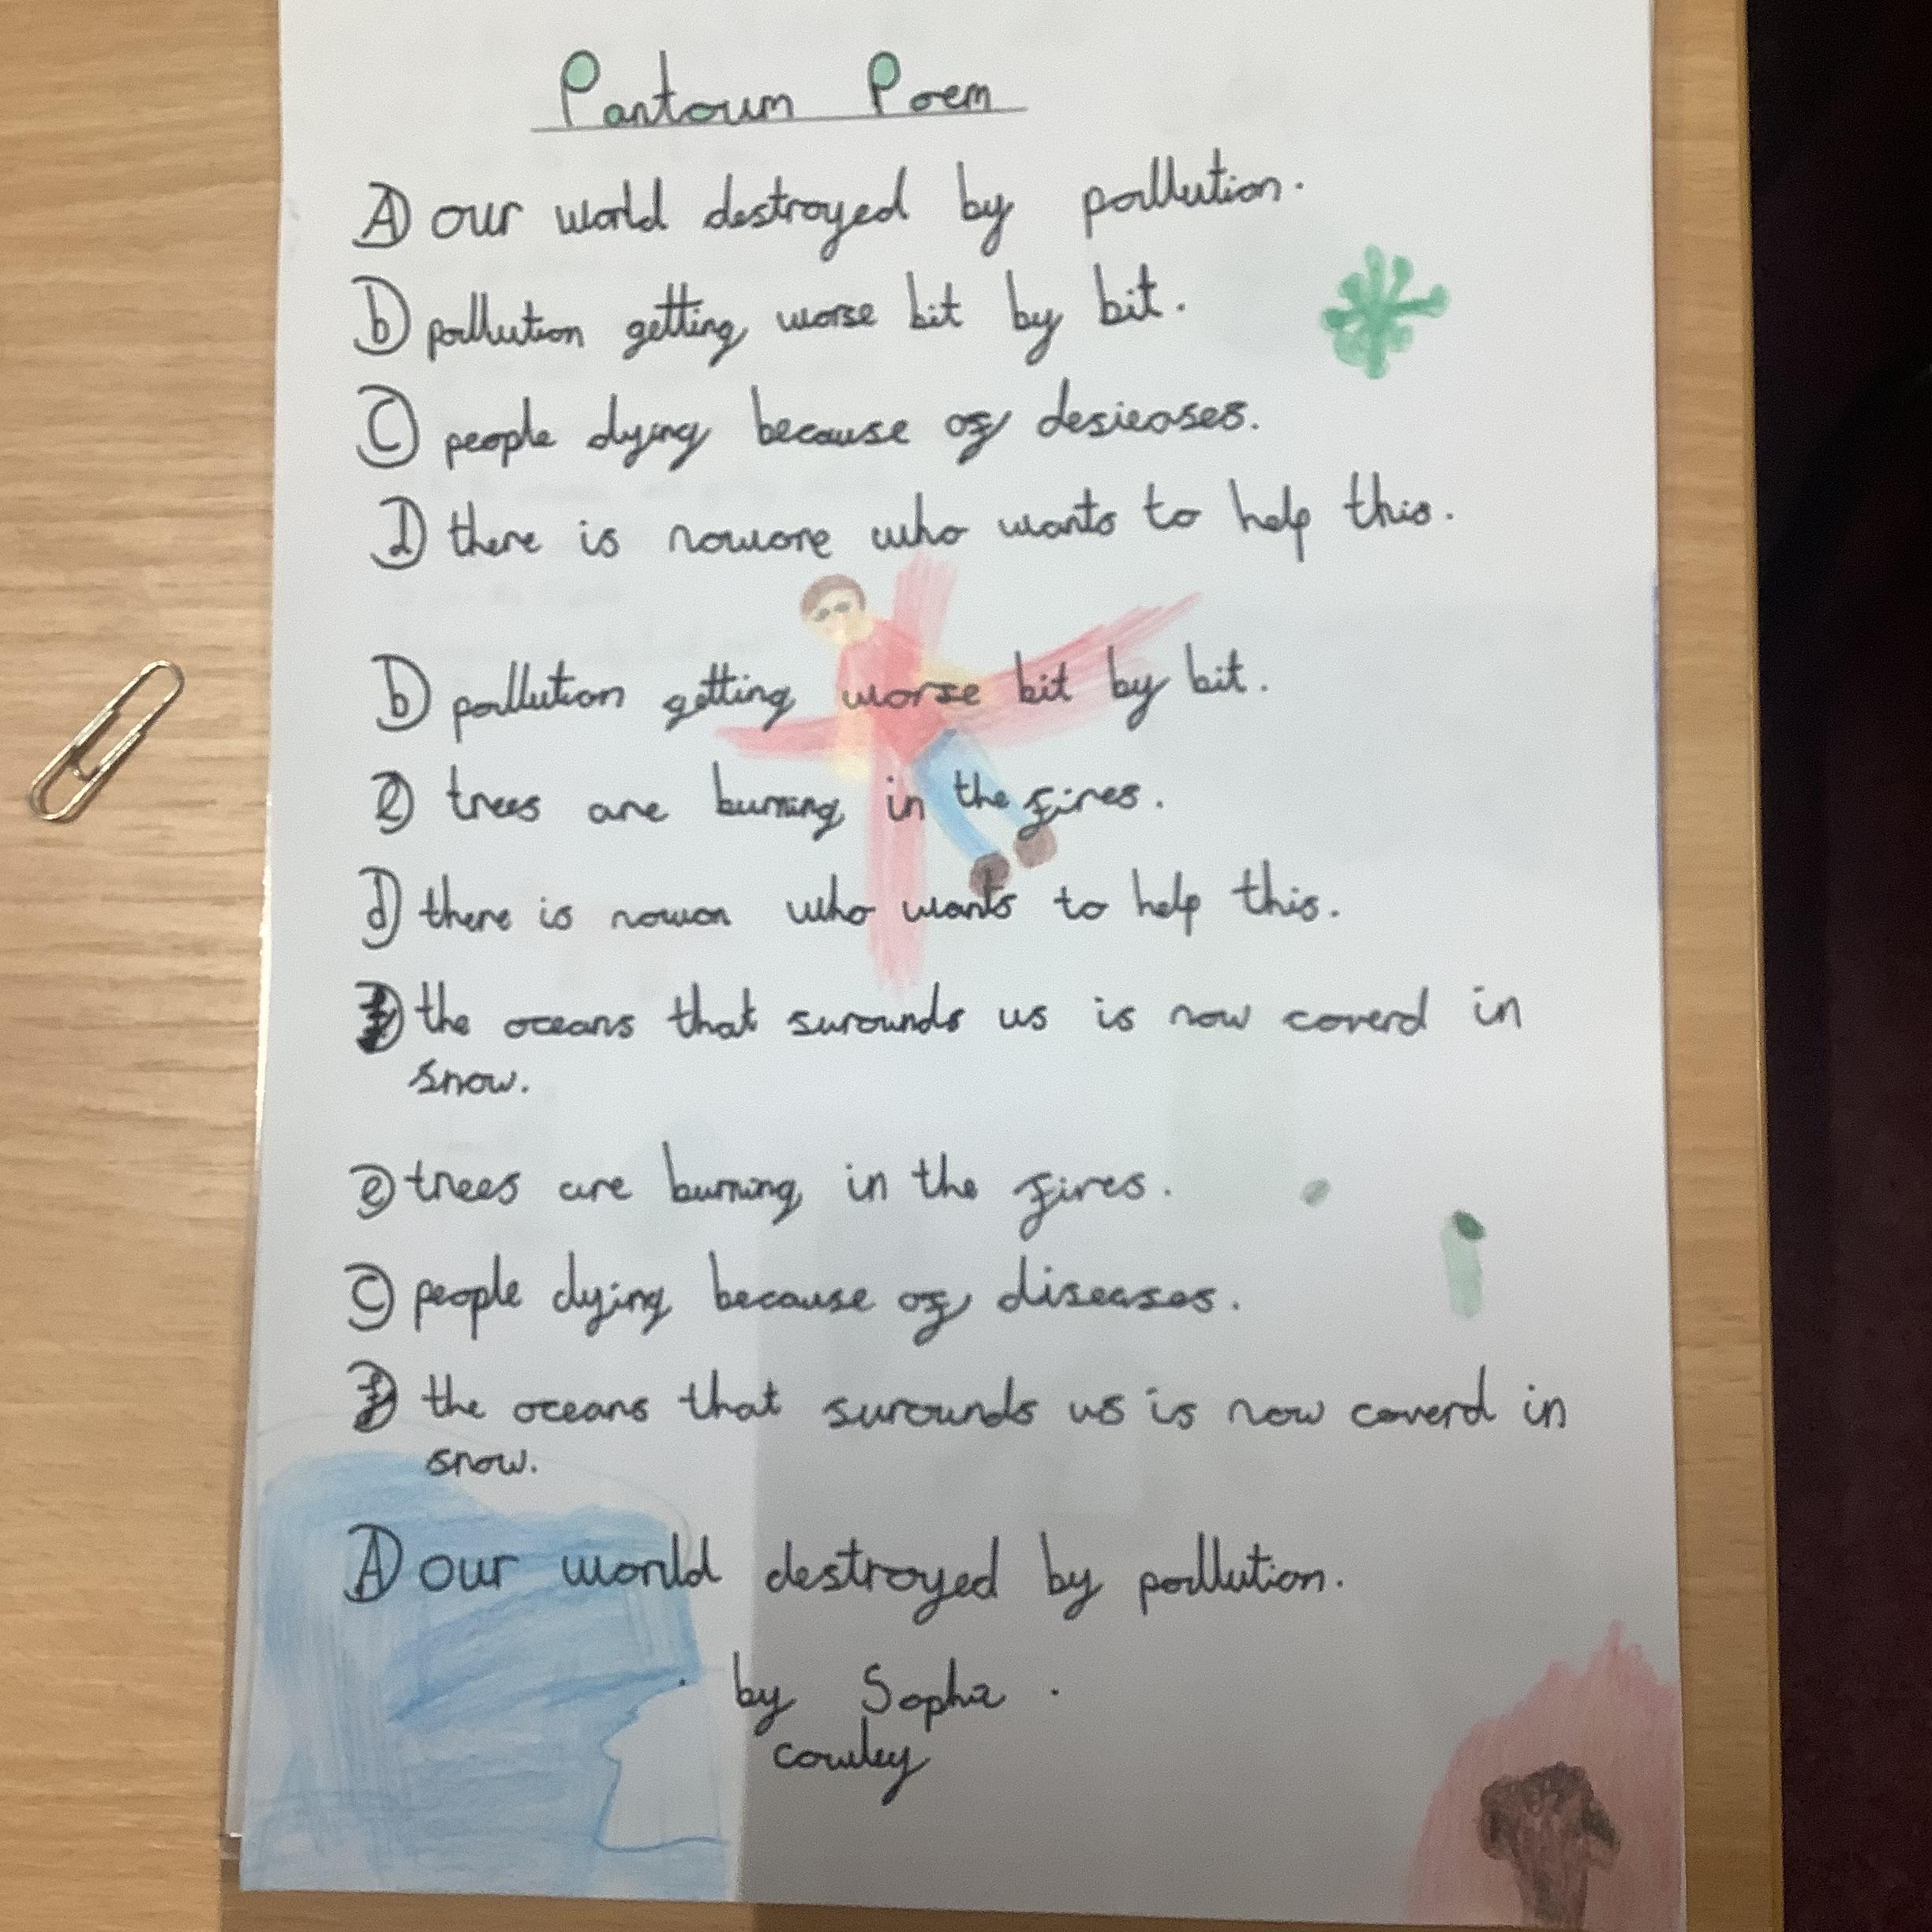 Pantoum Poem
A) our world destroyed by pollution.
b) pollution getting worse bit by bit.
C) people dying because of desieases.
D) there is nowone who wants to help this.
b) pollution getting worse bit by bit.
e) trees are burning in the fires.
d) there is nowon who wants to help this.
f) the oceans that surounds us is now coverd in
snow.
e) trees are burning in the fires.
C) people dying because of diseases.
f) the oceans that surounds us is now coverd in
snow.
A) our world destroyed by pollution.
by Sophia.
cowley